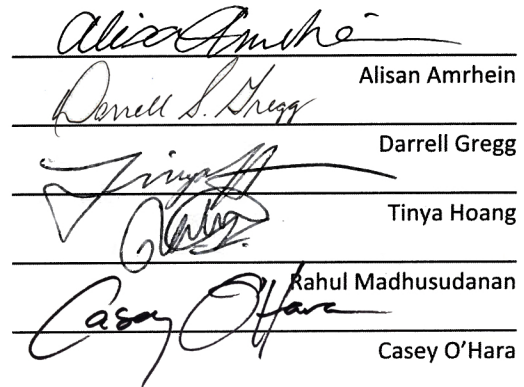 Alisa Amrhein
Alisan Amrhein
Darrell S. Gregg
Darrell Gregg
Tinya H
Tinya Hoang
Rahul
Rahul Madhusudanan
Casey O'Hara
Casey O’Hara